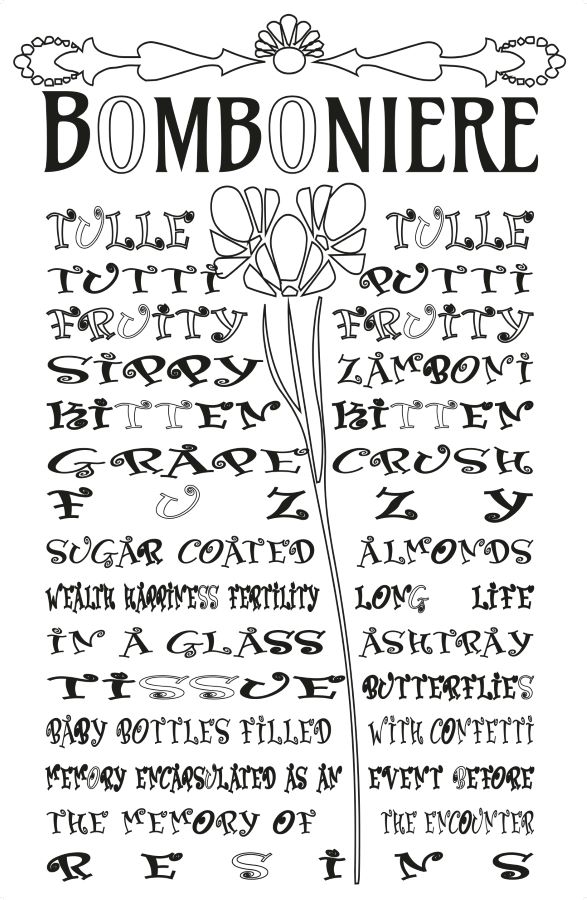 BOMBONIERE
TULLE TULLE
TUTTI PUTTI
FRUITY FRUITY
SIPPY ZAMBONI
KITTEN KITTEN
GRAPE CRUSH
F U Z Z Y
SUGAR COATED ALMONDS
WEALTH HAPPINESS FERTILITY LONG LIFE
IN A GLASS ASHTRAY
TISSUE BUTTERFLIES
BABY BOTTLES FILLED WITH CONFETTI
MEMORY ENCAPSULATED AS AN EVENT BEFORE
THE MEMORY OF THE ENCOUNTER
R E S I N S